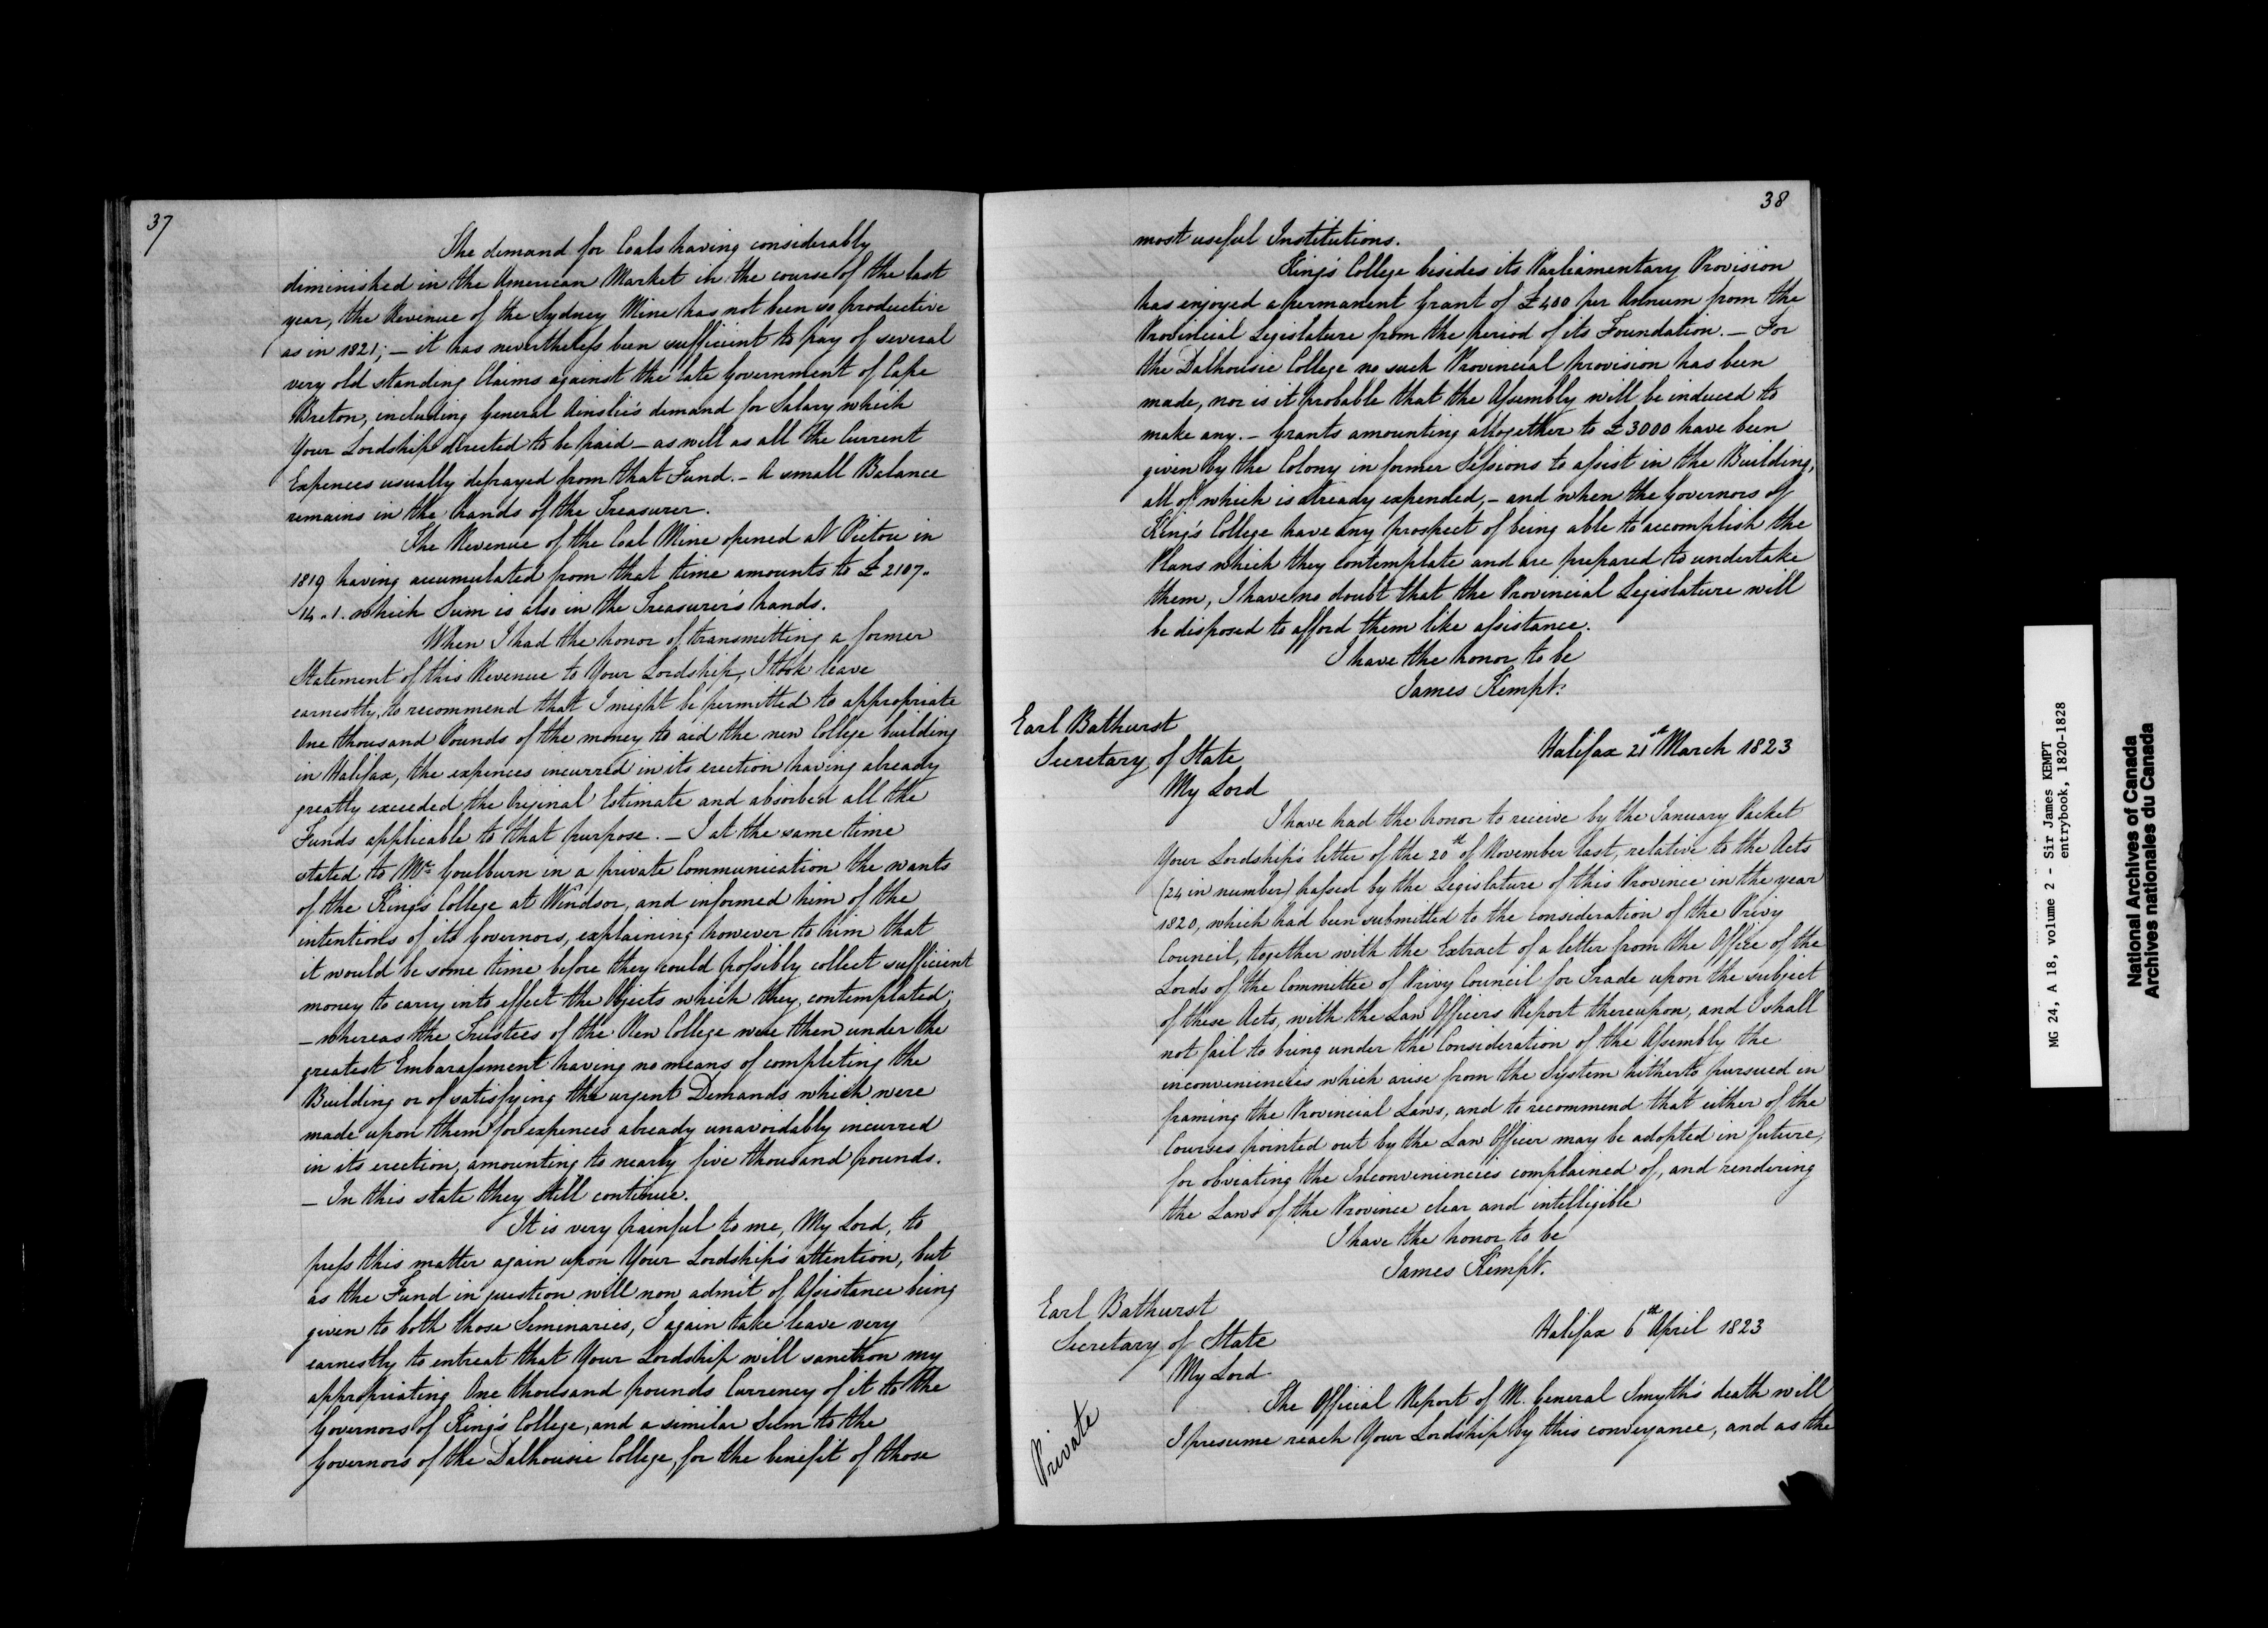 37
The demand for Coals having considerably
diminished in the American Market in the course of the last
year, the Revenue of the Sydney Mine has not been so productive
as in 1821; — it has nevertheless been sufficient to pay of several
very old standing Claims against the late Government of Cape
Breton, including General Ainslie's demand for Salary which
Your Lordship directed to be paid — as well as all the Current
Expences usually defrayed from that Fund. — A small Balance
remains in the hands of the Treasurer.
The Revenue of the Coal Mine opened at Pictou in
1819 having accumulated from that time amounts to £2107.
14.1. which Sum is also in the Treasurer's hands.
When I had the honor of transmitting a former
Statement of this Revenue to Your Lordship, I took leave
earnestly, to recommend that I might be permitted to appropriate
One thousand Pounds of the money to aid the new College building
in Halifax, the expences incurred in its erection having already
greatly exceeded the Original Estimate and absorbed all the
Funds applicable to that purpose. — I at the same time
stated to Mr. Goulburn in a private Communication the wants
of the King's College at Windsor, and informed him of the
intentions of its Governors, explaining however to him that
it would be some time before they could possibly collect sufficient
money to carry into effect the Objects which they contemplated;
— whereas the Trustees of the New College were then under the
greatest Embarassment having no means of completing the
Building or of satisfying the urgent Demands which were
made upon them for expences already unavoidably incurred
in its erection, amounting to nearly five thousand pounds.
— In this state they still continue.
It is very painful to me, My Lord, to
press this matter again upon Your Lordship's attention, but
as the Fund in question will now admit of Assistance being
given to both those Seminaries, I again take leave very
earnestly to entreat that Your Lordship will sanction my
appropriating One thousand pounds Currency of it to the
Governors of King's College, and a similar Sum to the
Governors of the Dalhousie College, for the benefit of those
38
most useful Institutions.
King's College besides its Parliamentary Provision
has enjoyed a permanent Grant of £400 per Annum from the
Provincial Legislature from the period of its Foundation. — For
the Dalhousie College no such Provincial provision has been
made, nor is it probable that the Assembly will be induced to
make any. — Grants amounting altogether to £3000 have been
given by the Colony in former Sessions to assist in the Building,
all of which is already expended, — and when the Governors of
King's College have any prospect of being able to accomplish the
Plans which they contemplate and are prepared to undertake
them, I have no doubt that the Provincial Legislature will
be disposed to afford them like assistance.
I have the honor to be
James Kempt.
Earl Bathurst
Secretary of State
Halifax 21st March 1823
My Lord
I have had the honor to receive by the January Packet
Your Lordship's letter of the 20th of November last, relative to the Acts
(24 in number) passed by the Legislature of this Province in the year
1820, which had been submitted to the consideration of the Privy
Council, together with the Extract of a letter from the Office of the
Lords of the Committee of Privy Council for Trade upon the subject
of these Acts, with the Law Officers Report thereupon, and I shall
not fail to bring under the Consideration of the Assembly the
inconveniencies which arise from the System hitherto pursued in
framing the Provincial Laws, and to recommend that either of the
Courses pointed out by the Law Officer may be adopted in future,
for obviating the Inconveniencies complained of, and rendering
the Laws of the Province clear and intelligible
I have the honor to be
James Kempt.
Earl Bathurst
Secretary of State
Halifax 6th April 1823
My Lord
Private
The Official Report of M. General Smyth's death will
I presume reach Your Lordship by this conveyance, and as the
MG 24, A 18, volume 2 - Sir James KEMPT
entrybook, 1820-1828
National Archives of Canada
Archives nationales du Canada